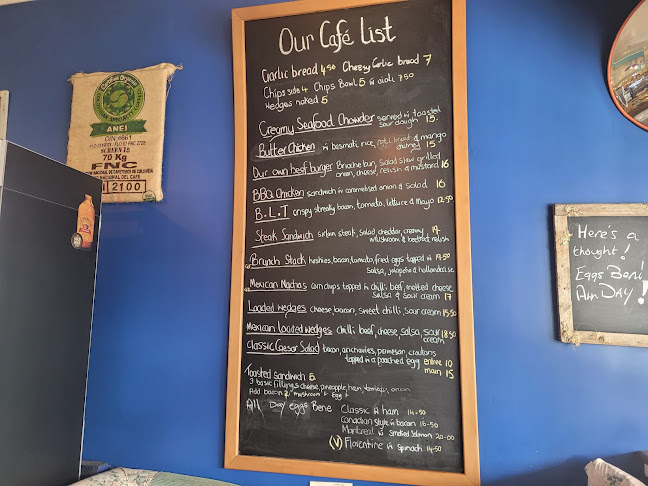 Our Café List
Garlic bread 4.50 Cheesy Garlic bread 7
Chips side 4 Chips Bowl 5 w aioli 7.50
Wedges naked 5
Creamy Seafood Chowder served w toasted
sour dough 15.
Butter Chicken w basmati rice, roti bread & mango
chutney 15
Our own beef burger Brioche bun, Salad slaw grilled
onion, cheese, relish & mustard 16
BBQ Chicken sandwich w caramelised onion & salad 16
B.L.T crispy streaky bacon, tomato, lettuce & mayo 12.50
Steak Sandwich sirloin steak, salad cheddar, creamy 17
mushroom & beetroot relish
Brunch Stack hashies, bacon, tomato, fried eggs topped w 19.50
Salsa, jalapeño & hollandaise
Mexican Nachos corn chips topped w chilli beef, melted cheese
Salsa & Sour cream 17
Loaded Wedges cheese, bacon, sweet chilli, sour cream 15.50
Mexican Loaded Wedges chilli beef, cheese, salsa, sour 18.50
cream
Classic Caesar Salad bacon, anchovies, parmesan, croutons
topped w a poached egg entree 10
main 15
Toasted Sandwich 5.
3 basic fillings cheese, pineapple, ham, tomato, onion
Add bacon 2 mushroom 1 Egg 1
All Day eggs Bene Classic w ham 14-50
Canadian style w bacon 16-50
Montreal w Smoked Salmon 20-00
(V) Florentine w Spinach 14-50
Here's a
thought!
Eggs Beni
All DAY!
ANEI
70 Kg
FNC
2100